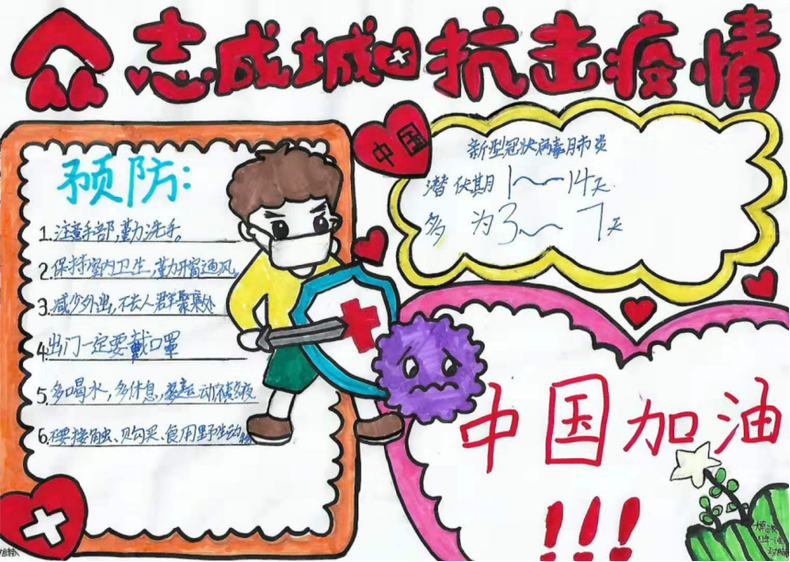 众志成城抗击疫情
预防:
1.注意手部,勤洗手。
2.保持室内卫生,勤开窗通风。
3.减少外出,不去人群聚集处
4.出门一定要戴口罩
5.多喝水,多休息,
6.不要接触、购买、食用野生动物
中国
新型冠状病毒肺炎
潜伏期1~14天
多为3~7天
中国加油
!!!